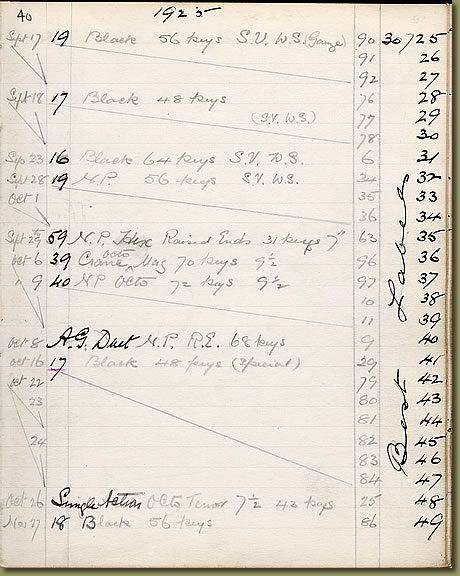 40 1925
Sept 17 19 Black 56 keys S.V. W.S. (Gauze) 90 30725
91 26
92 27
Sept 18 17 Black 48 keys 76 28
(S.V. W.S.) 77 29
78 30
Sep 23 16 Black 64 keys S.V. W.S. 6 31
Sept 28 19 N.P. 56 keys S.V. W.S. 34 32
Oct 1 35 33
36 34
Sept 29 59 N.P. Hex Raised Ends 31 keys 7" 63 35
Oct 6 39 Crane octo Mag 70 keys 9½ 96 36
" 9 40 NP Octo 72 keys 9½ 97 37
10 38
11 39
Oct 8 A.G. Duet N.P. R.E. 68 keys 9 40
Oct 16 17 Black 48 keys (Special) 29 41
Oct 22 79 42
23 80 43
81 44
24 82 45
83 46
84 47
Oct 26 Single Action Octo Tenor 7½ 43 keys 25 48
Nov 27 18 Black 56 keys 86 49
Best Labels